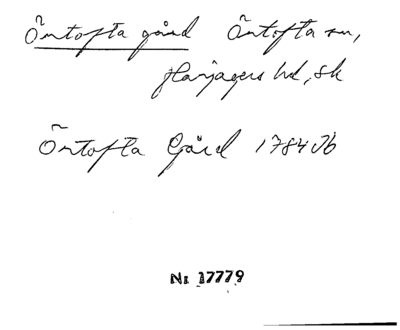 Öntofta gård Öntofta sn,
Harjagers hd, Sk
Öntofta Gård 1784 Jb
Nr 17779